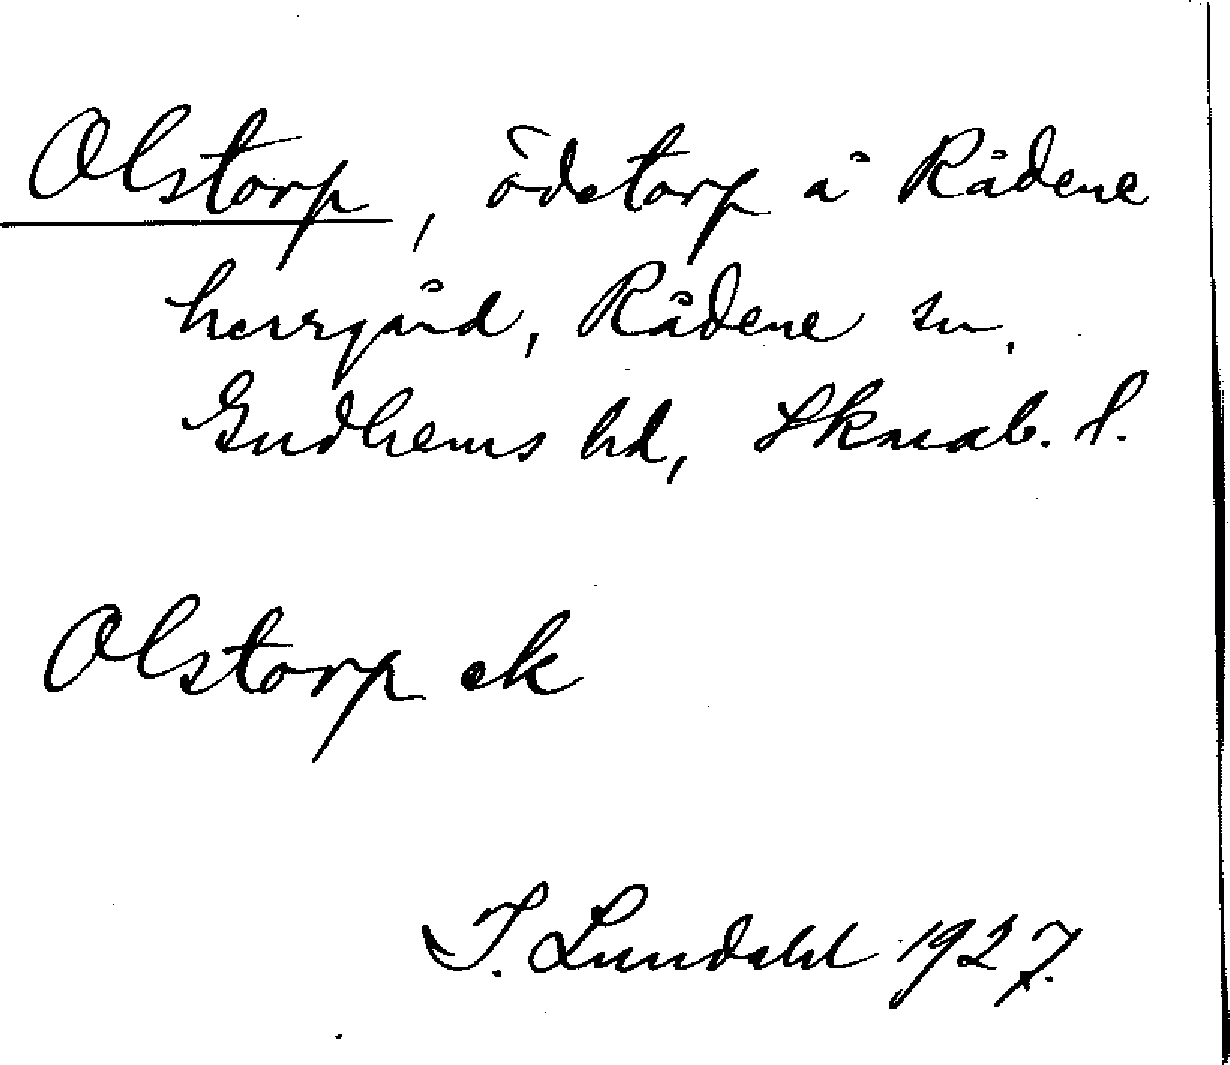 Olstorp, ödetorp å Rådene
herrgård, Rådene sn,
Gudhems hd, Skarab. l.
Olstorp ek
I. Lundahl 1927.